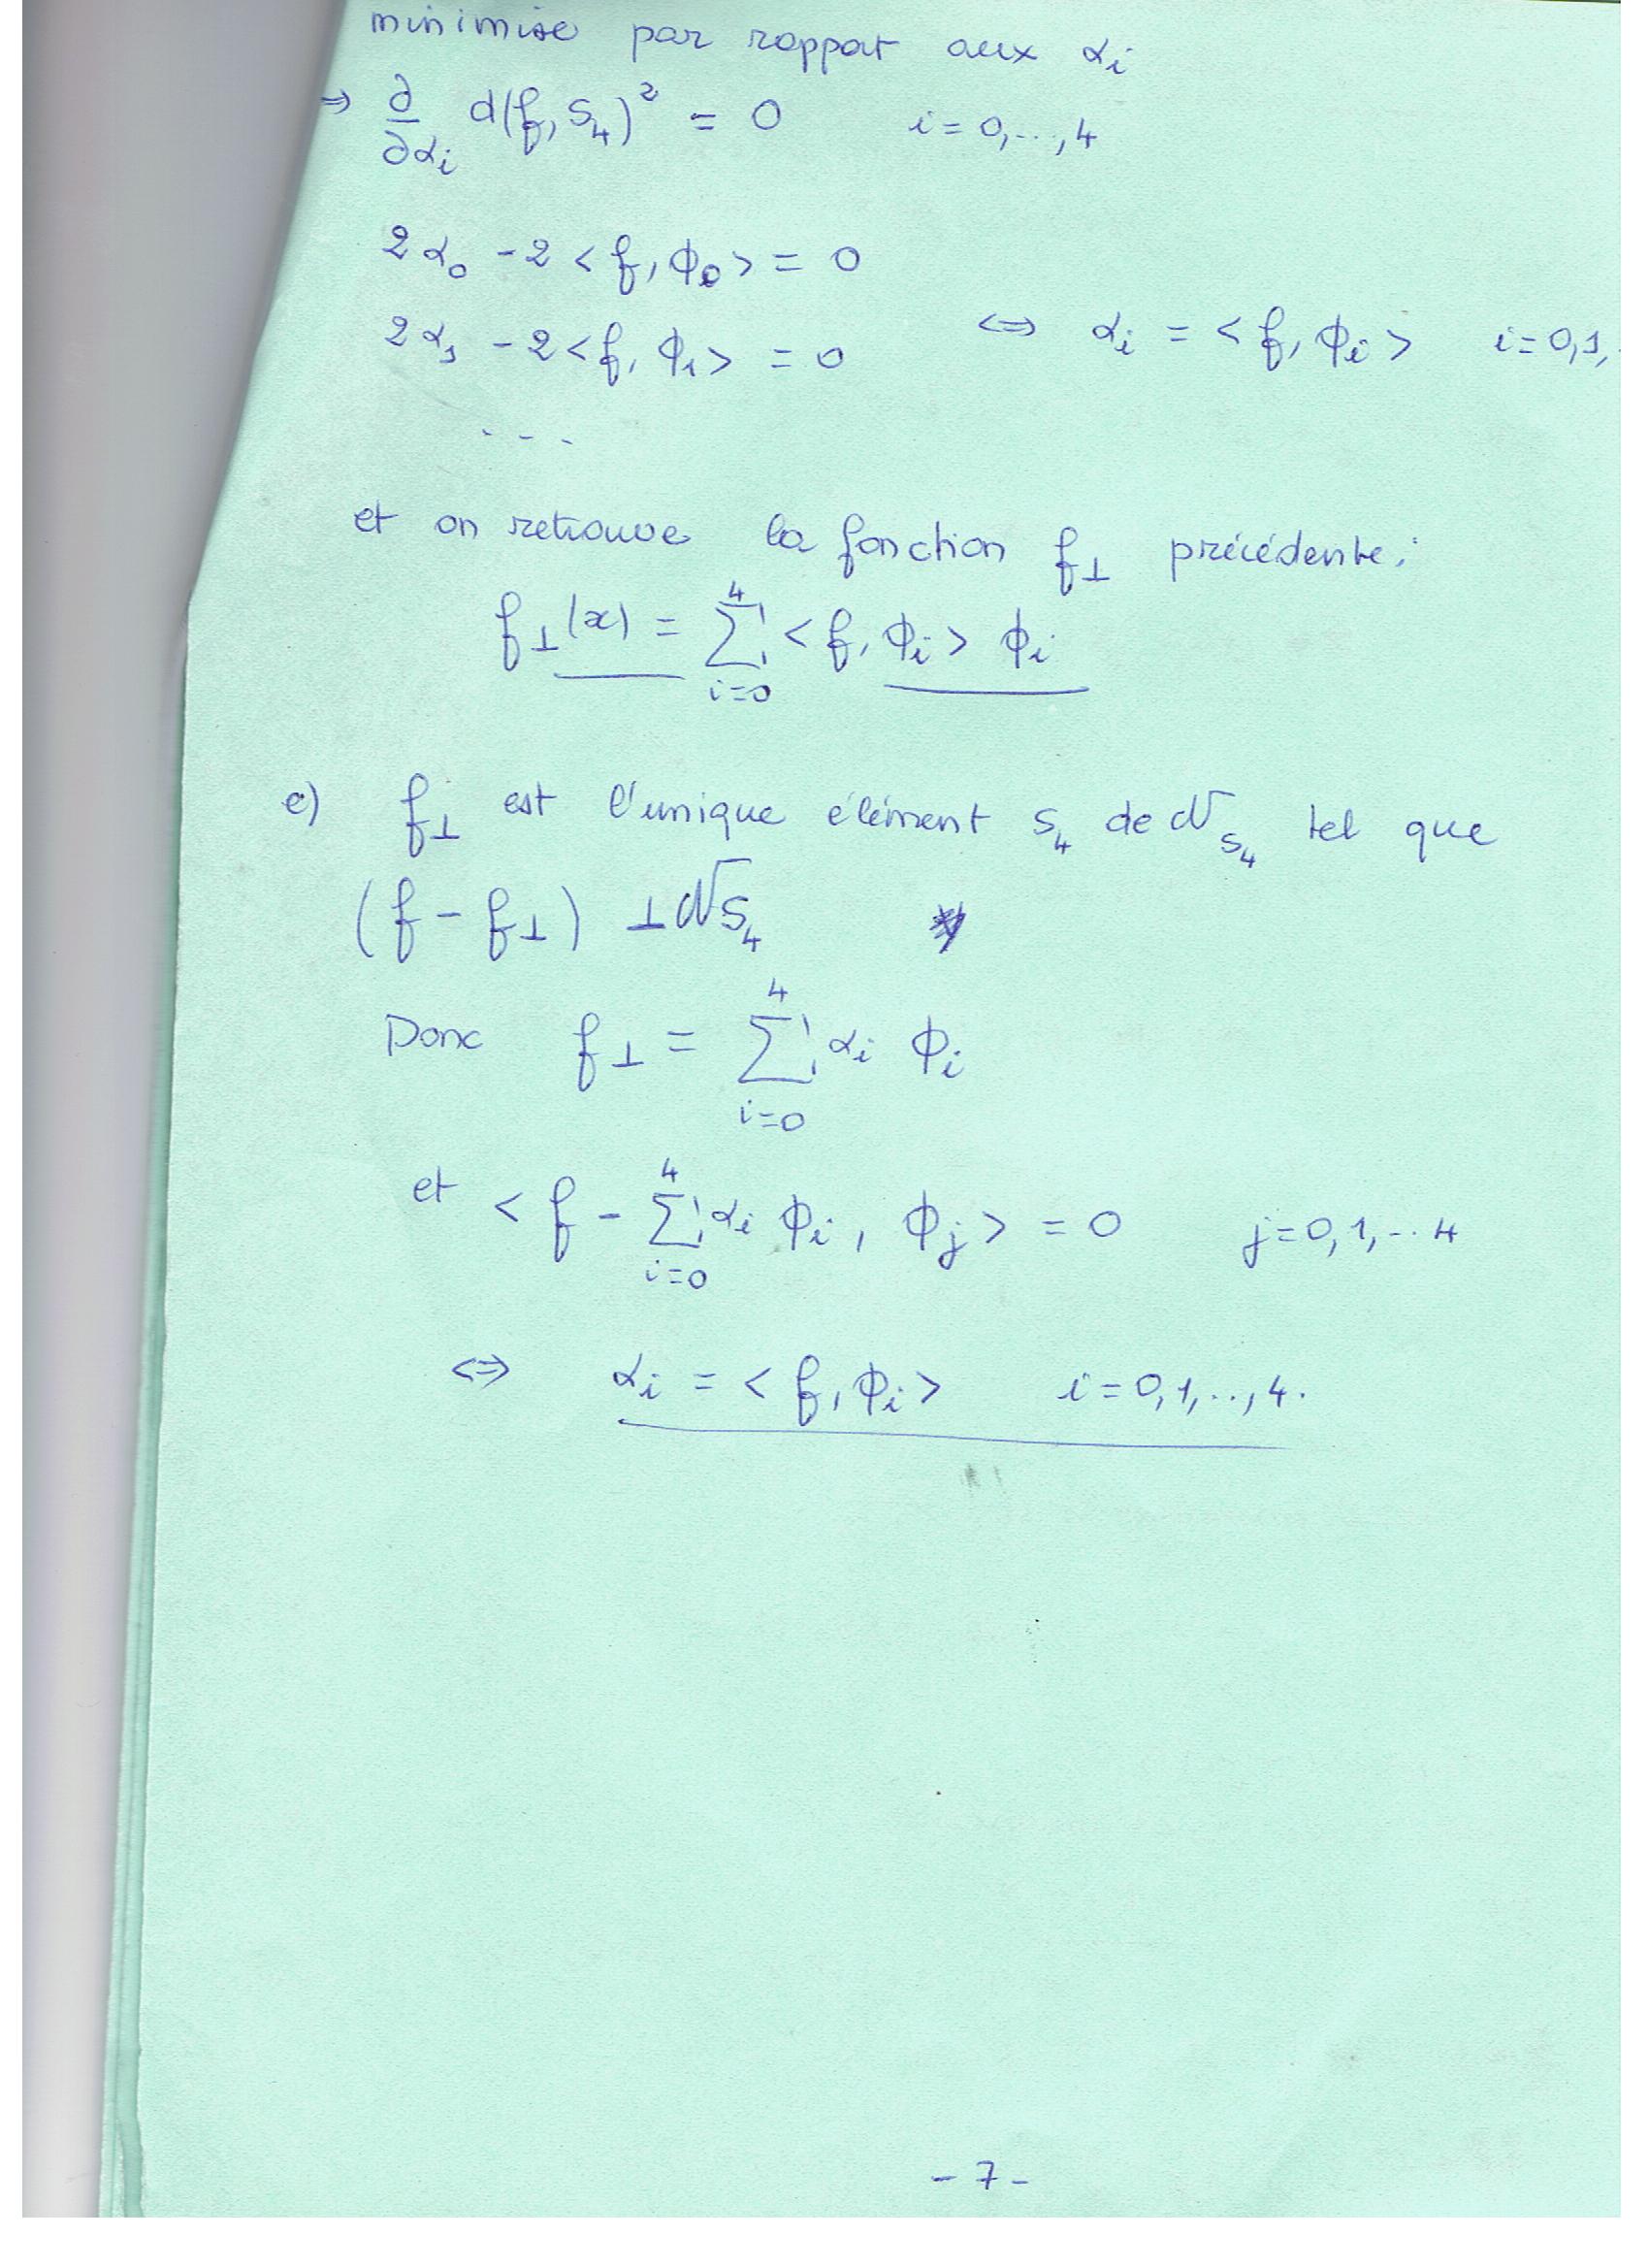 minimise par rapport aux αi
⇒ ∂/∂αi d(f, S4)² = 0 i = 0,...,4
2α0 - 2 <f, ϕ0> = 0
2α1 - 2 <f, ϕ1> = 0 ⇔ αi = <f, ϕi> i=0,1,
- - -
et on retrouve la fonction f⊥ précédente:
f⊥(x) = Σ_{i=0}^{4} <f, ϕi> ϕi
e) f⊥ est l'unique élément S4 de 𝒩_{S4} tel que
(f - f⊥) ⊥ 𝒩_{S4}
Donc f⊥ = Σ_{i=0}^{4} αi ϕi
et <f - Σ_{i=0}^{4} αi ϕi, ϕj> = 0 j=0,1,..4
⇔ αi = <f, ϕi> i=0,1,..,4.
- 7 -